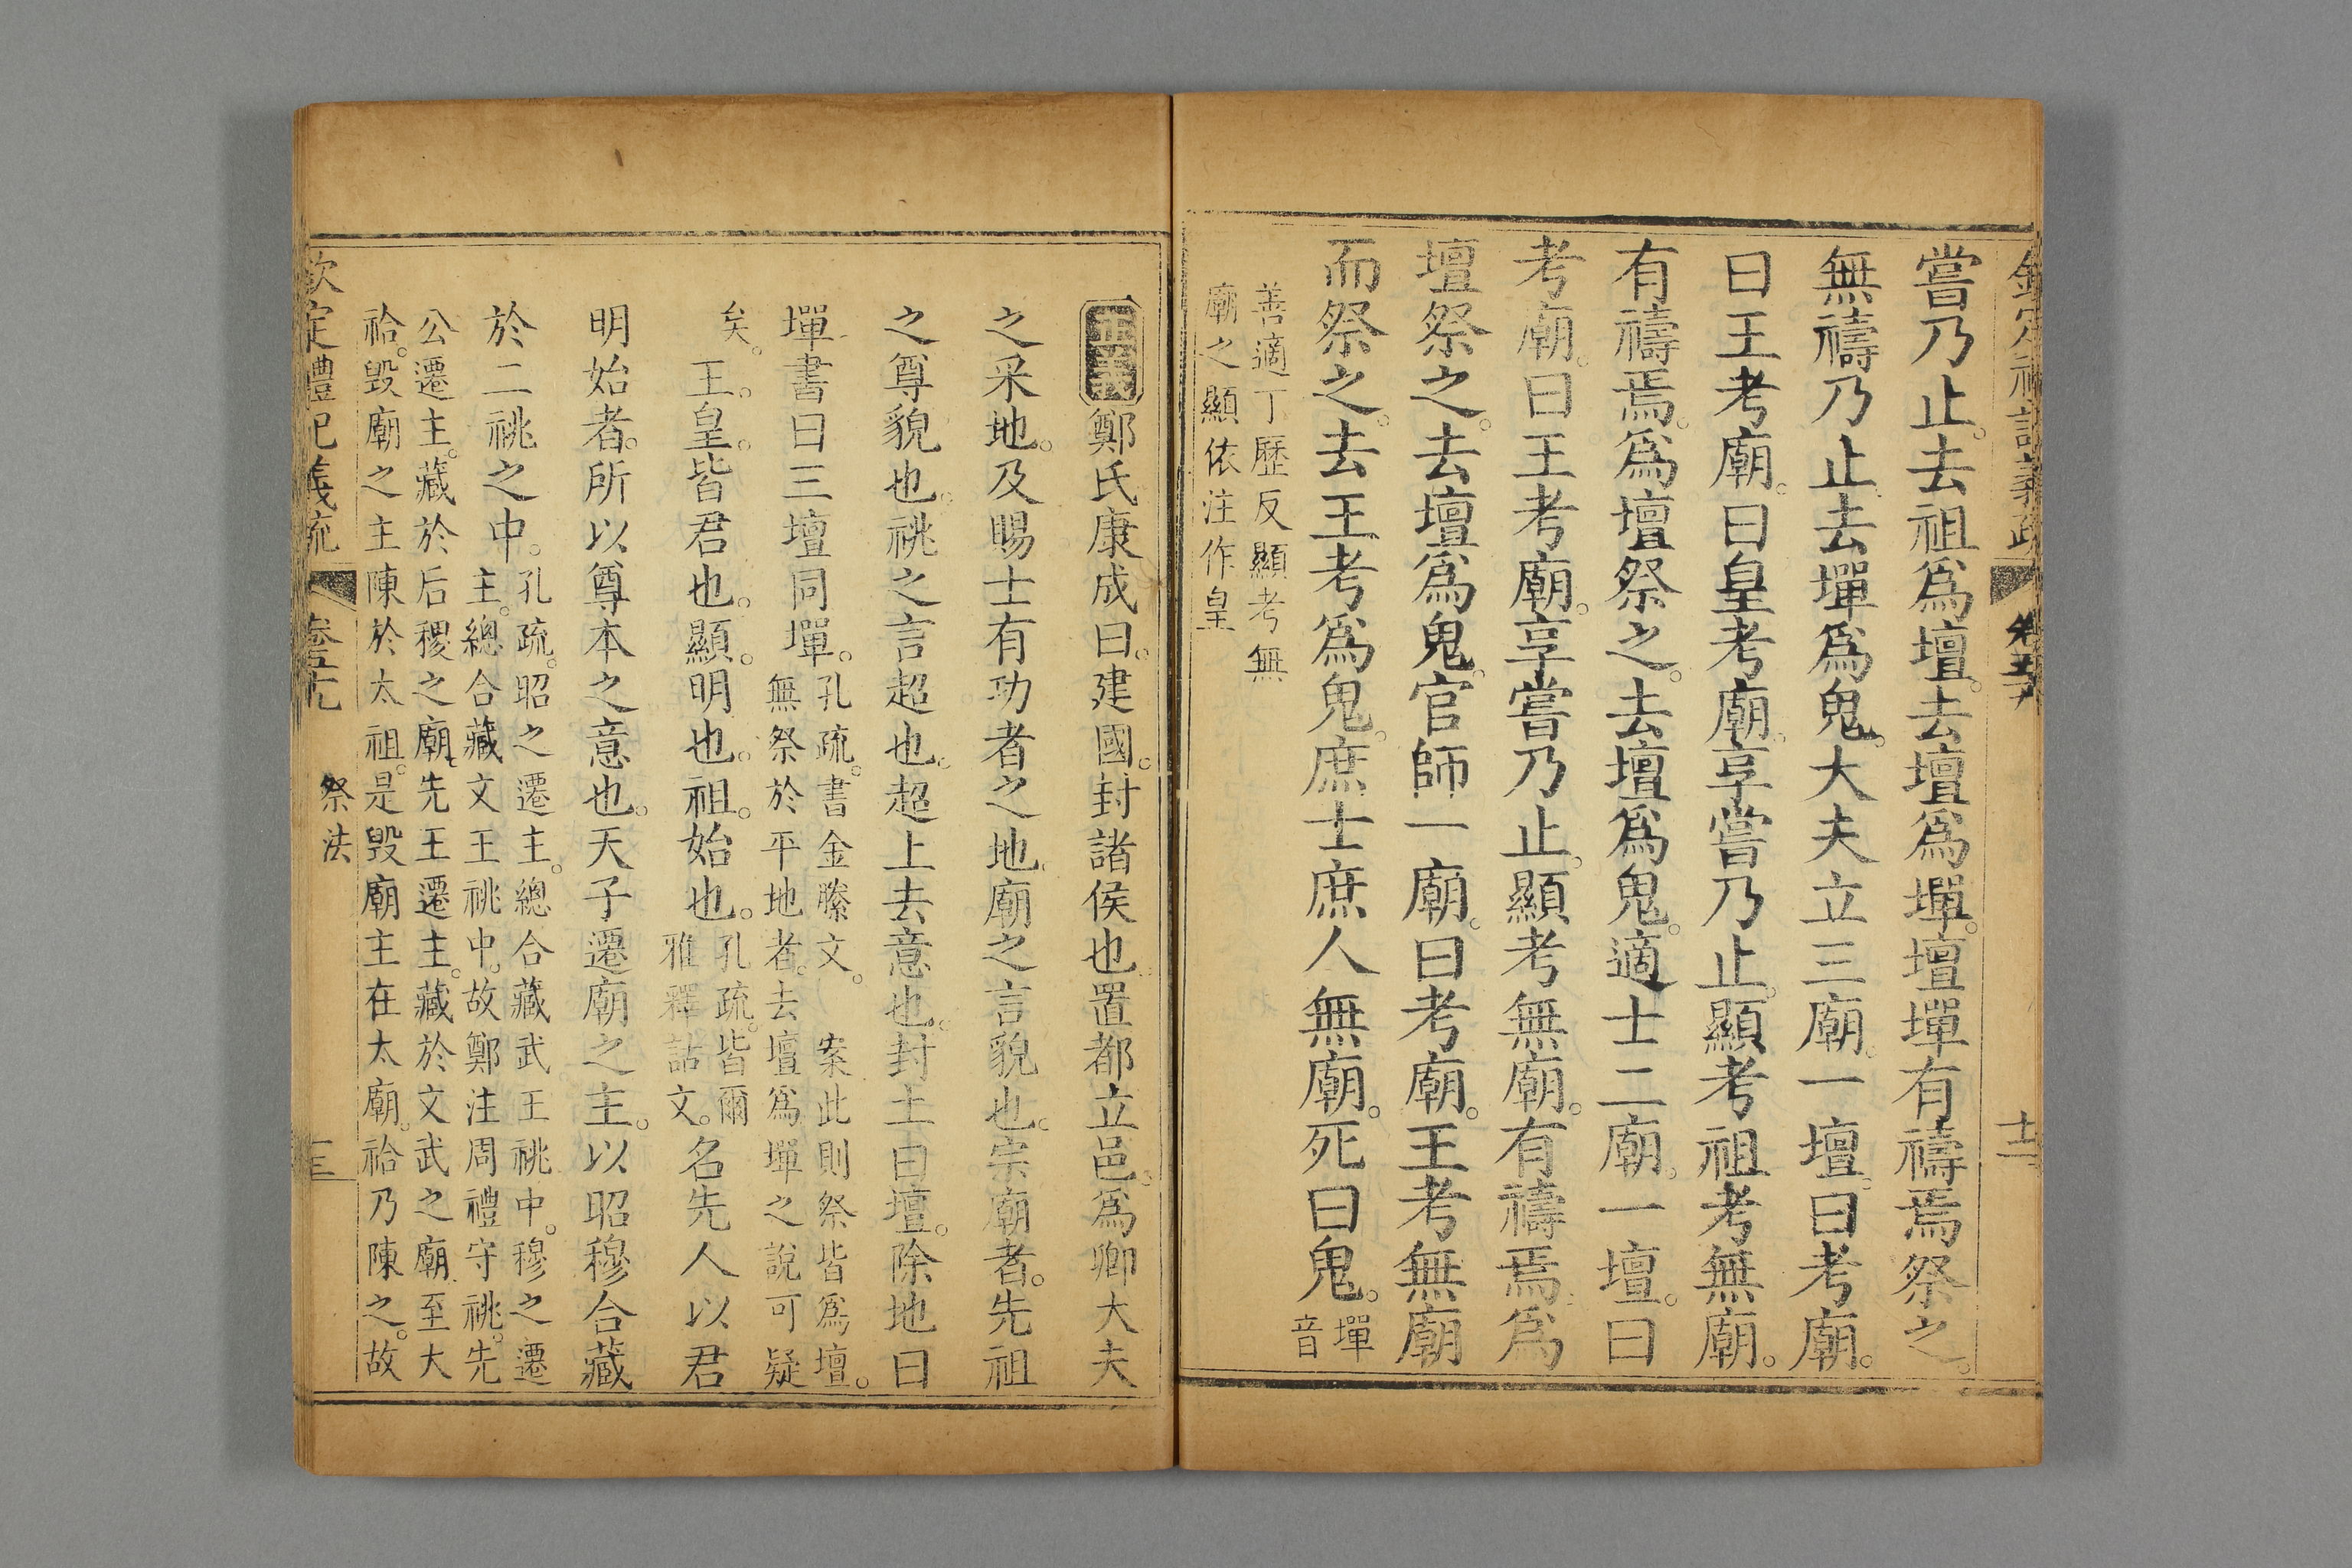 嘗乃止。去祖爲壇。去壇爲墠。壇墠有禱焉祭之。
無禱乃止。去墠爲鬼。大夫立三廟。一壇。曰考廟。
曰王考廟。曰皇考廟。享嘗乃止。顯考祖考無廟。
有禱焉。爲壇祭之。去壇爲鬼。適士二廟。一壇。曰
考廟。曰王考廟。享嘗乃止。顯考無廟。有禱焉。爲
壇祭之。去壇爲鬼。官師一廟。曰考廟。王考無廟
而祭之。去王考爲鬼。庶士庶人無廟。死曰鬼。墠音
善適丁歷反顯考無
廟之顯依注作皇
正義鄭氏康成曰。建國。封諸侯也。置都立邑。爲卿大夫
之采地。及賜士有功者之地。廟之言貌也。宗廟者。先祖
之尊貌也。祧之言超也。超上去意也。封土曰壇。除地曰
墠。書曰三壇同墠。孔疏。書金縢文。 案此則祭皆爲壇。
無祭於平地者。去壇爲墠之說可疑
矣。王。皇。皆君也。顯。明也。祖。始也。孔疏。皆爾
雅釋詁文。名先人以君
明始者。所以尊本之意也。天子遷廟之主。以昭穆合藏
於二祧之中。孔疏。昭之遷主。總合藏武王祧中。穆之遷
主。總合藏文王祧中。故鄭注周禮守祧。先
公遷主。藏於后稷之廟。先王遷主。藏於文武之廟。至大
祫。毀廟之主陳於太祖。是毀廟主在太廟。祫乃陳之。故
欽定禮記義疏 卷五十九 祭法 十三